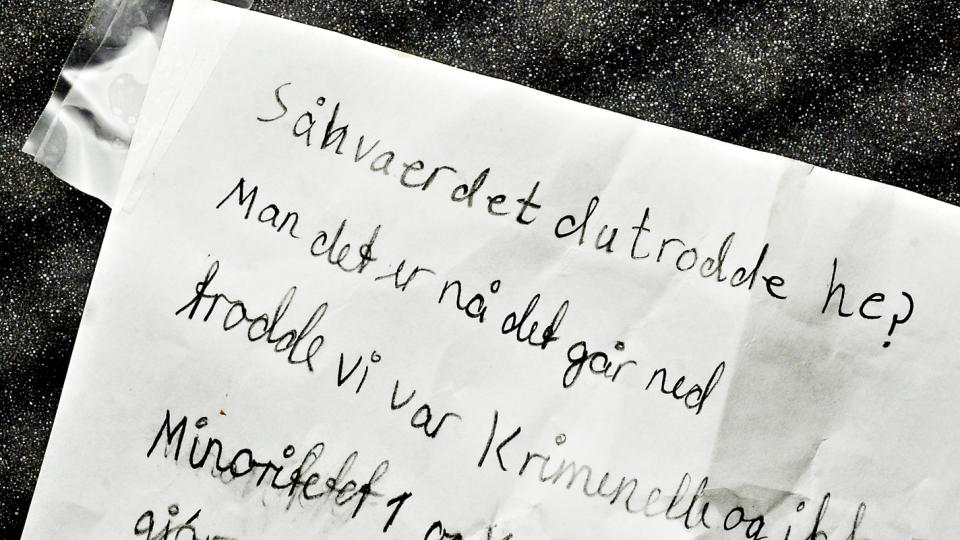 Såhvaerdet dutrodde he?
Man det er nå det går ned
trodde vi var Kriminelle og ikke
Minoritetet 1